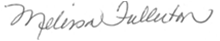 Melissa Fullerton